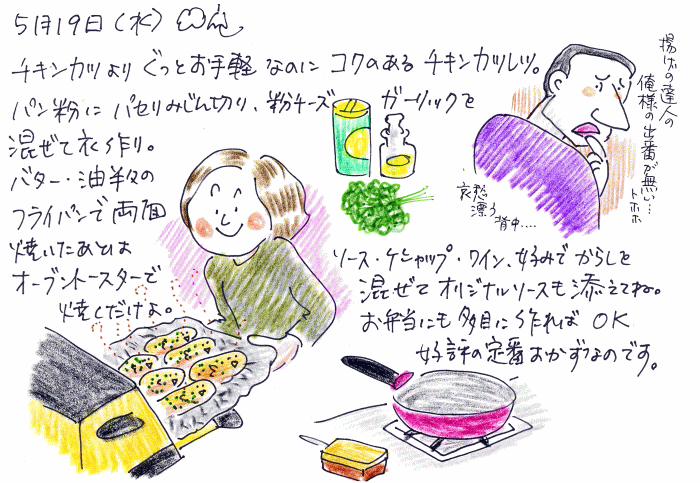 5月19日(水)
チキンカツよりぐっとお手軽なのにコクのあるチキンカツレツ。
パン粉にパセリみじん切り、粉チーズ ガーリックを
混ぜて衣作り。
バター・油半々の
フライパンで両面
焼いたあとは
オーブントースターで
焼くだけよ。
揚げの達人の
俺様の出番が無い…
トホホ
哀愁
漂う
背中….
ソース・ケチャップ・ワイン、好みでからしを
混ぜてオリジナルソースも添えてね。
お弁当にも多目に作ればOK
好評の定番おかずなのです。